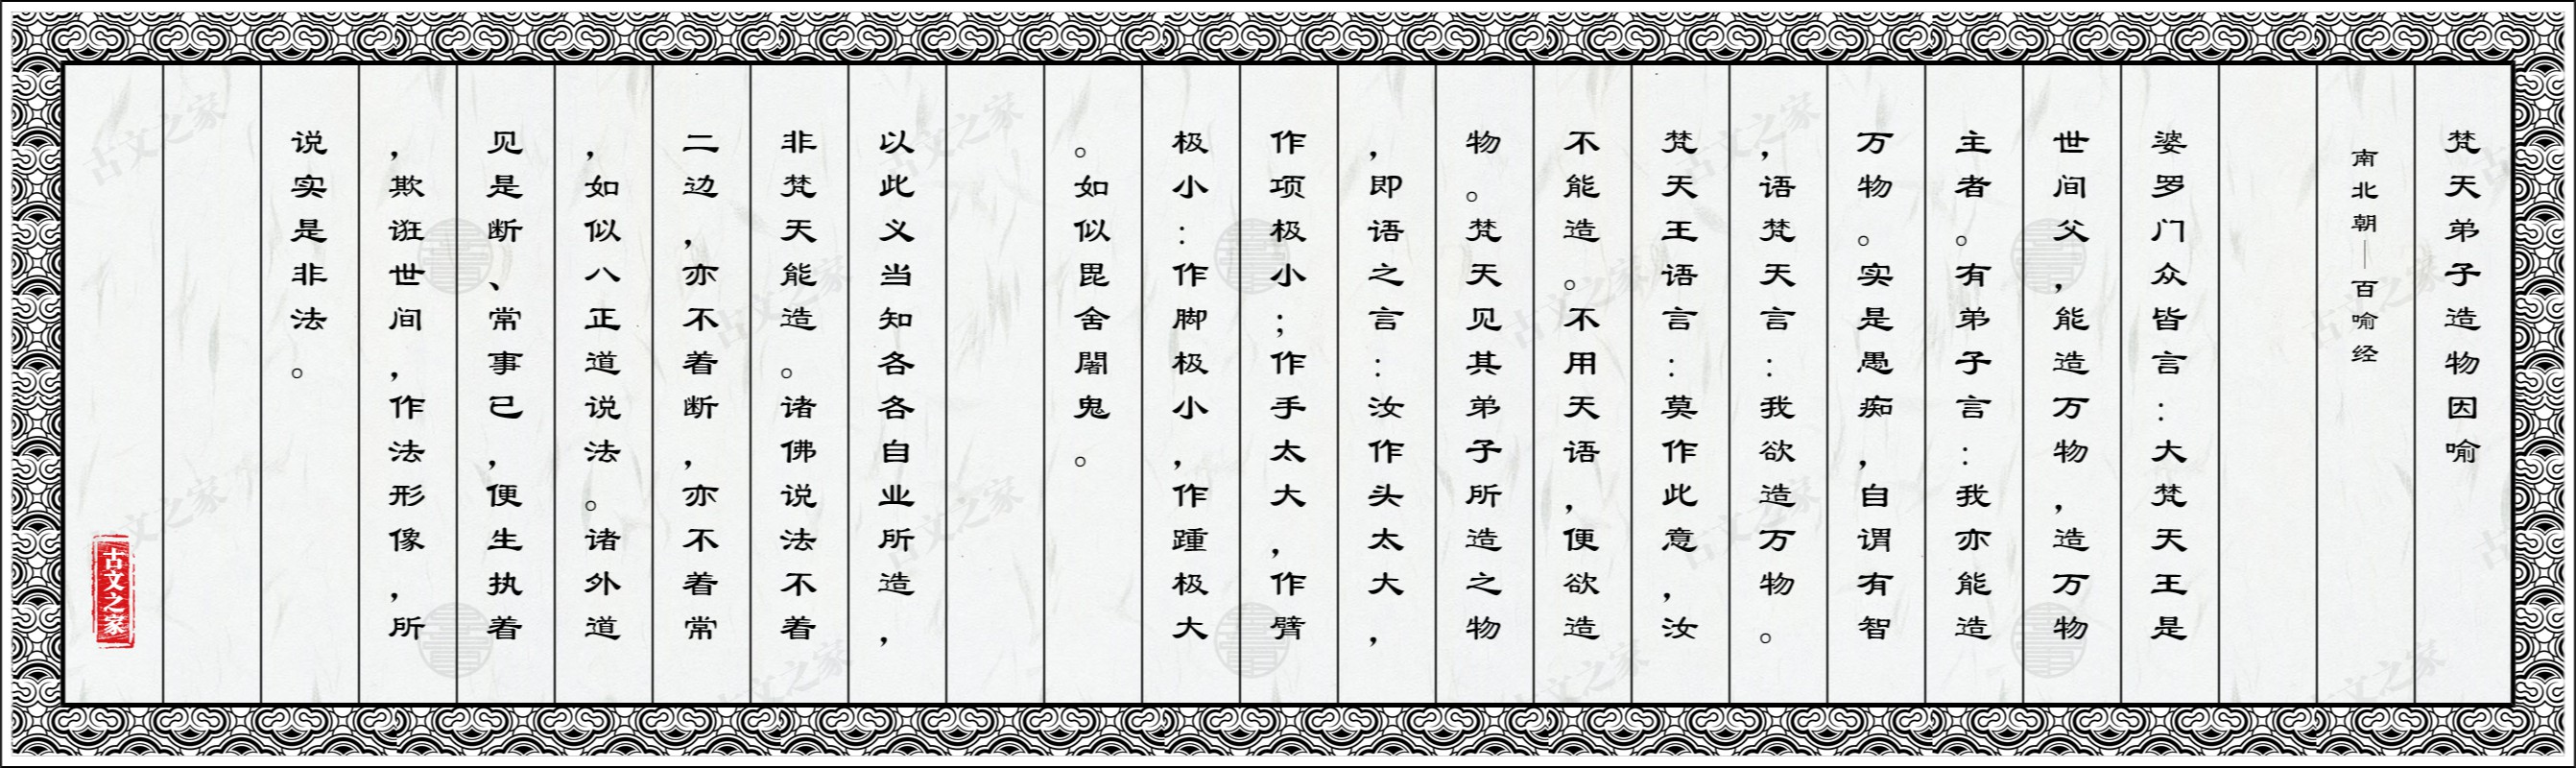 梵天弟子造物因喻
南北朝｜百喻经
婆罗门众皆言：大梵天王是
世间父，能造万物，造万物
主者。有弟子言：我亦能造
万物。实是愚痴，自谓有智
，语梵天言：我欲造万物。
梵天王语言：莫作此意，汝
不能造。不用天语，便欲造
物。梵天见其弟子所造之物
，即语之言：汝作头太大，
作项极小；作手太大，作臂
极小：作脚极小，作踵极大
。如似毘舍闍鬼。
以此义当知各各自业所造，
非梵天能造。诸佛说法不着
二边，亦不着断，亦不着常
，如似八正道说法。诸外道
见是断、常事已，便生执着
，欺诳世间，作法形像，所
说实是非法。
古文之家